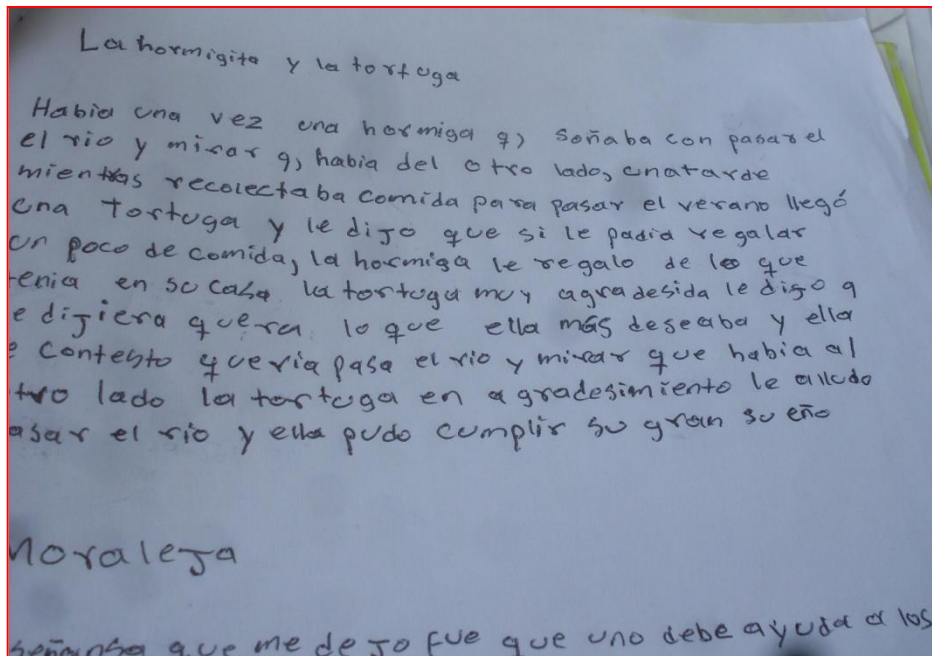 La hormigita y la tortuga
Habia una vez una hormiga q, soñaba con pasar el
el rio y mirar q, habia del otro lado, una tarde
mientras recolectaba comida para pasar el verano llegó
una tortuga y le dijo que si le podia regalar
un poco de comida, la hormiga le regalo de lo que
tenia en su casa la tortuga muy agradesida le dijo q
e dijiera quera lo que ella más deseaba y ella
e contesto queria pasa el rio y mirar que habia al
otro lado la tortuga en agradesimiento le alludo
asar el rio y ella pudo cumplir su gran sueño
moraleja
señansa que me dejo fue que uno debe ayuda a los